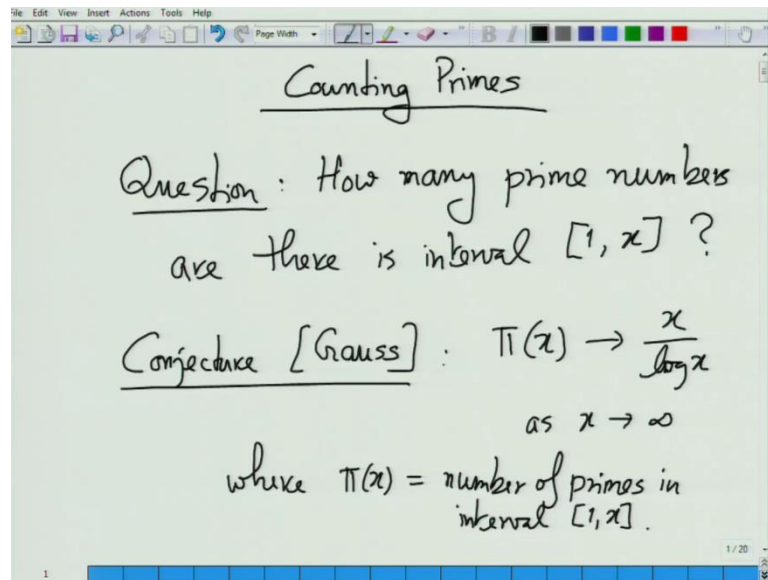 File Edit View Insert Actions Tools Help
Page Width
Counting Primes
Question : How many prime numbers
are there is interval [1, x] ?
Conjecture [Gauss] : π(x) → x / log x
as x → ∞
where π(x) = number of primes in
interval [1, x].
1 / 20
1